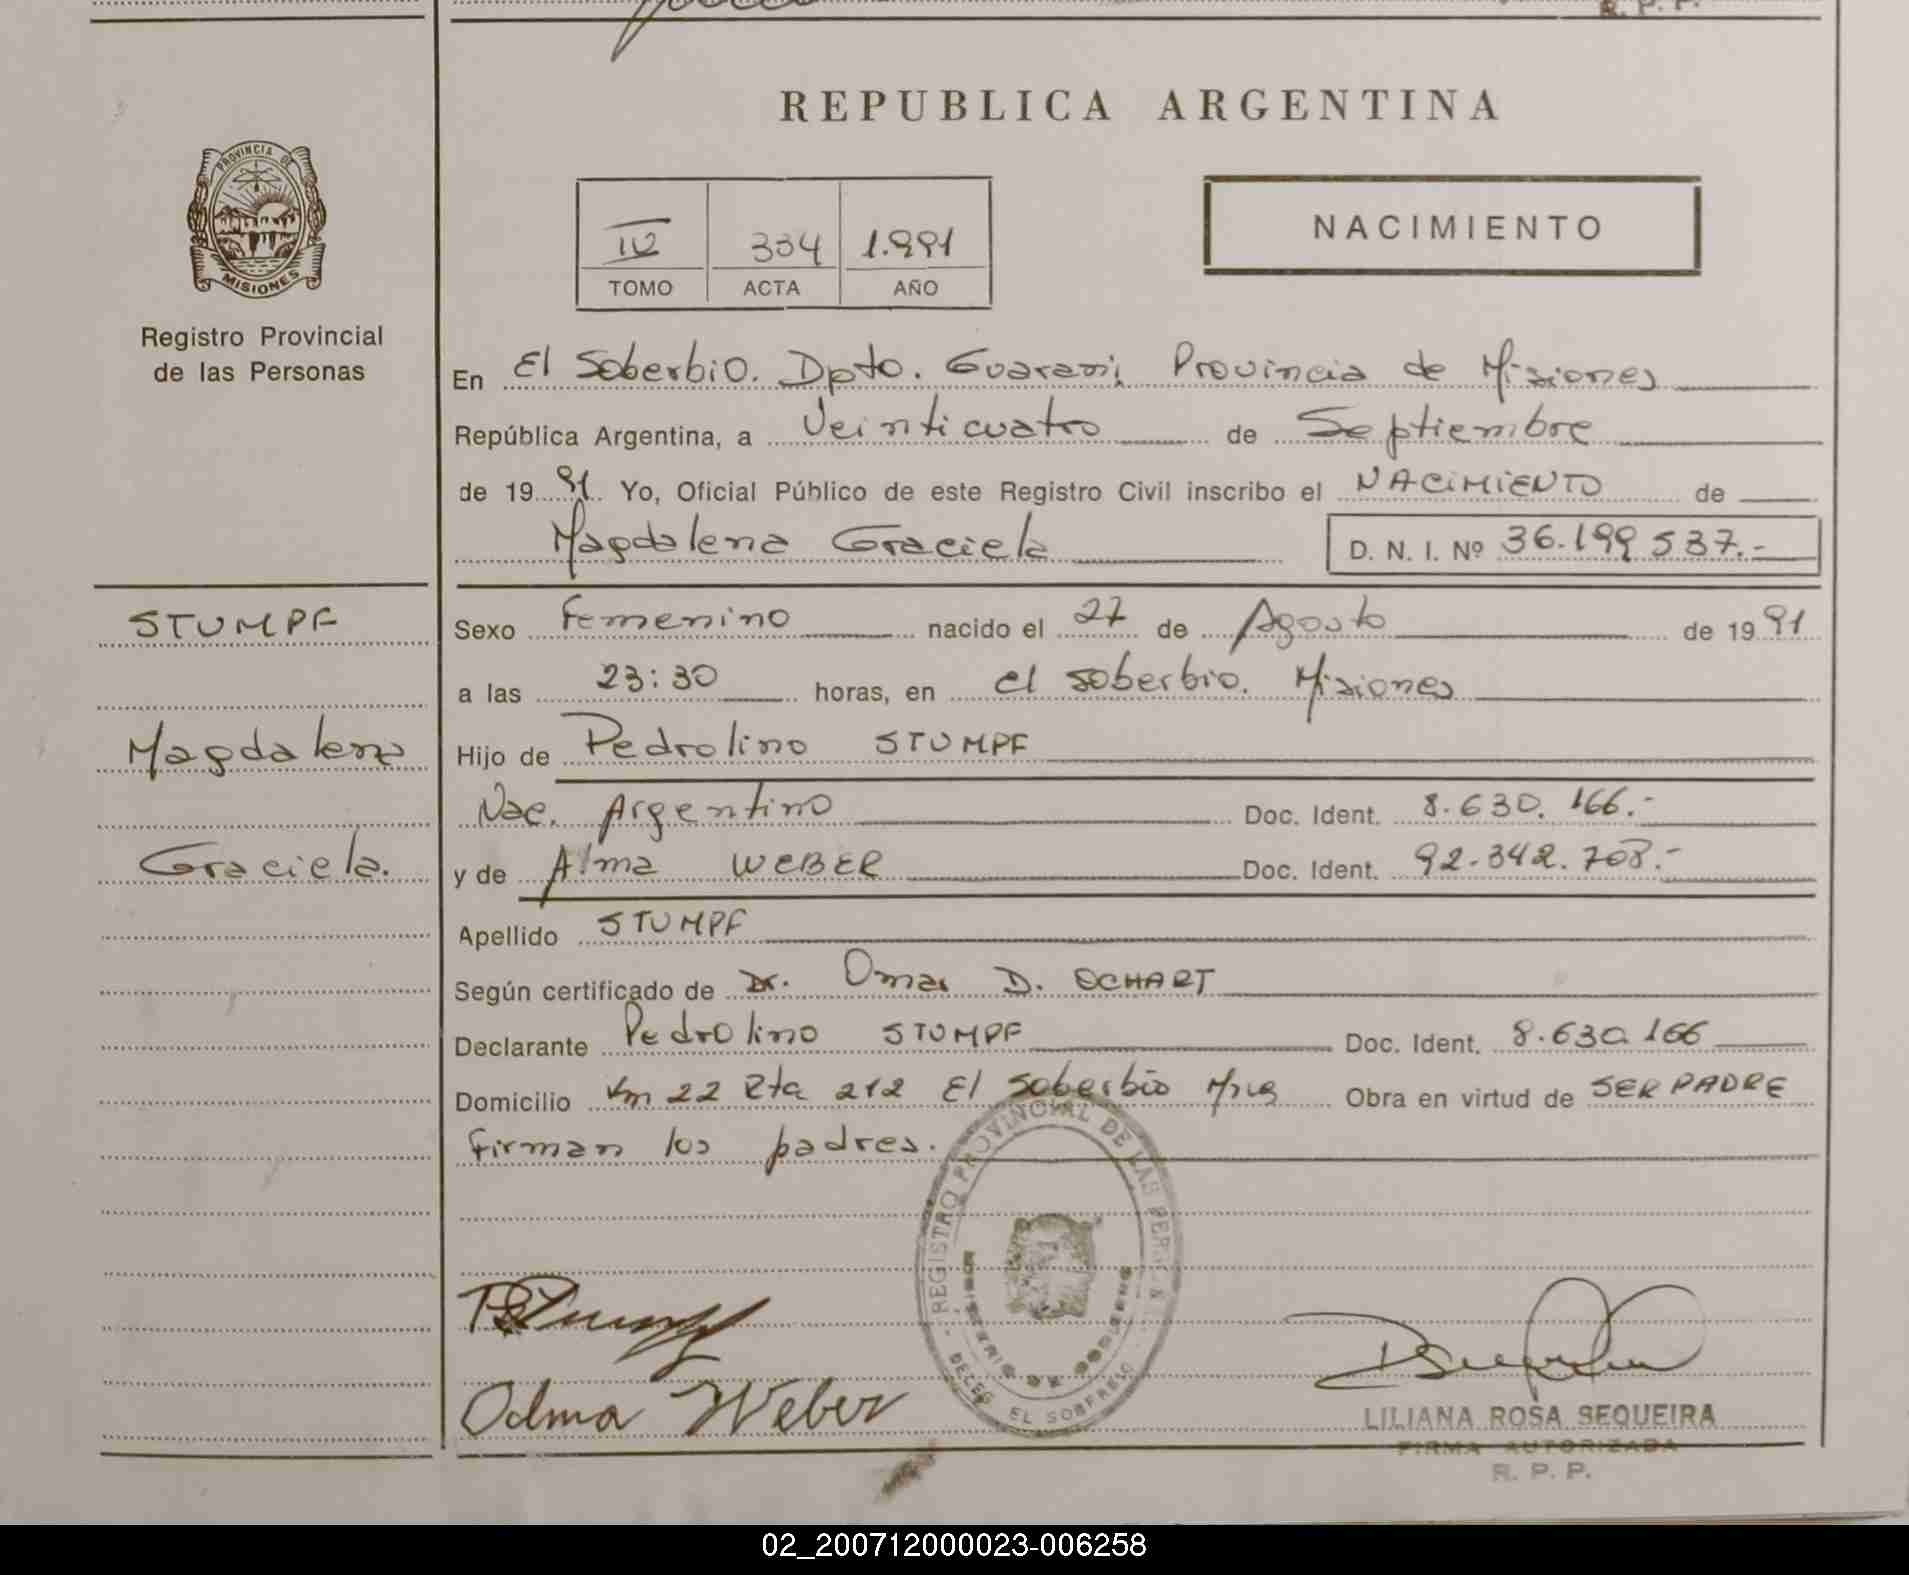 R. P. P.
REPUBLICA ARGENTINA
PROVINCIA DE
MISIONES
Registro Provincial
de las Personas
IV 334 1.991
TOMO ACTA AÑO
NACIMIENTO
En El Soberbio. Dpto. Guarani, Provincia de Misiones
República Argentina, a Veinticuatro de Septiembre
de 19 91. Yo, Oficial Público de este Registro Civil inscribo el NACIMIENTO de
Magdalena Graciela D. N. I. Nº 36.199 537.-
STUMPF
Magdalena
Graciela.
Sexo Femenino nacido el 27 de Agosto de 19 91
a las 23:30 horas, en el soberbio. Misiones
Hijo de Pedrolino STUMPF
Nac. Argentino Doc. Ident. 8.630.166.-
y de Alma WEBER Doc. Ident. 92.342.708.-
Apellido STUMPF
Según certificado de Dr. Omar D. OCHART
Declarante Pedrolino STUMPF Doc. Ident. 8.630.166
Domicilio Km 22 Rta 212 El Soberbio Mnes Obra en virtud de SER PADRE
Firman los padres.
REGISTRO PROVINCIAL DE LAS PERSONAS
MINISTERIO DE GOBIERNO
DELEG. EL SOBERBIO
Alma Weber
LILIANA ROSA SEQUEIRA
FIRMA AUTORIZADA
R. P. P.
02_200712000023-006258